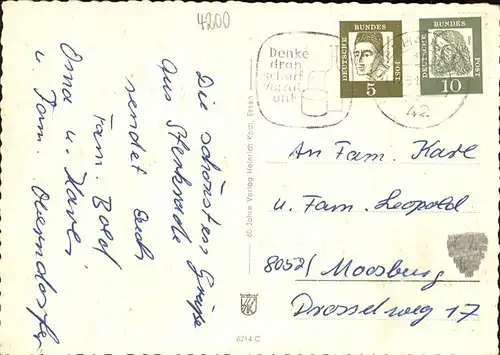 4200
Die schönsten Grüße
aus Sterkrade
sendet Euch
Fam. Bold
Oma u. Karl
u. Fam. Oberndorfer
60 Jahre Verlag Heinrich Koch, Essen
6214 C
Denke
dran
schaff
Vorrat
an!
42
DEUTSCHE BUNDES POST
5
DEUTSCHE BUNDES POST
10
An Fam. Karl
u. Fam. Leopold
8052/ Moosburg
Drosselweg 17